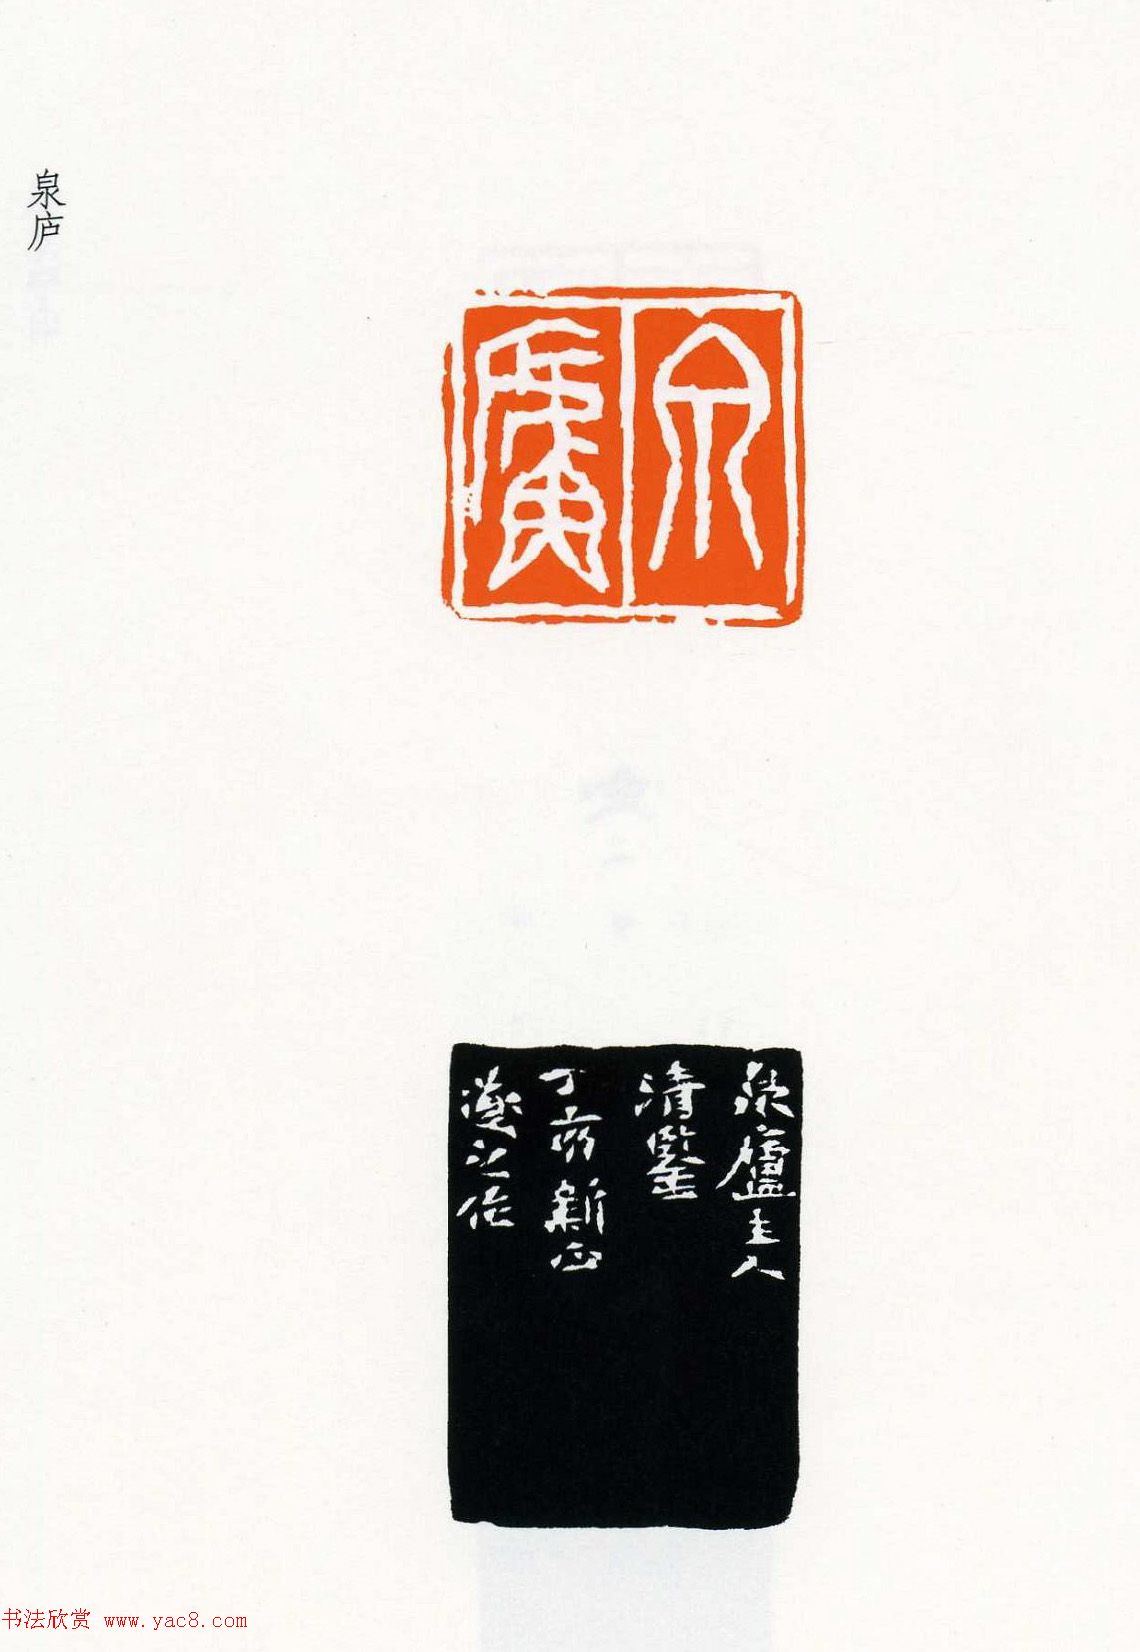 泉庐
泉廬
泉廬主人
清鑒
丁亥新正
之作
书法欣赏 www.yac8.com